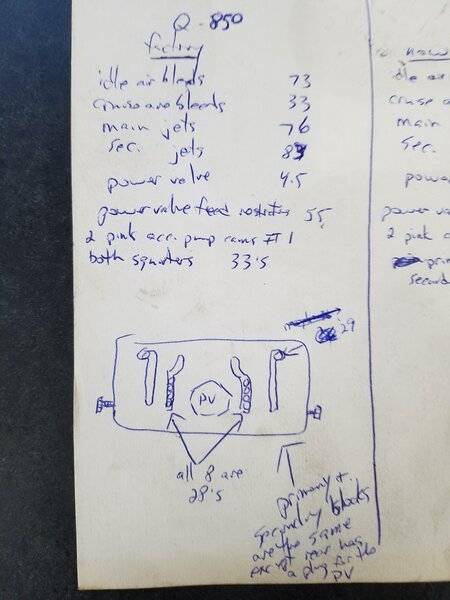 Q-850
factory
idle air bleeds 73
cruise air bleeds 33
main jets 76
sec. jets 83
power valve 4.5
power valve feed restrictors 55
2 pink acc. pump cams #1
both squirters 33's
29
PV
all 8 are
28's
primary +
secondary blocks
are the same
except rear has
a plug for the
PV
now
idle air
cruse a
main
sec.
powe
power va
2 pink c
prin
second